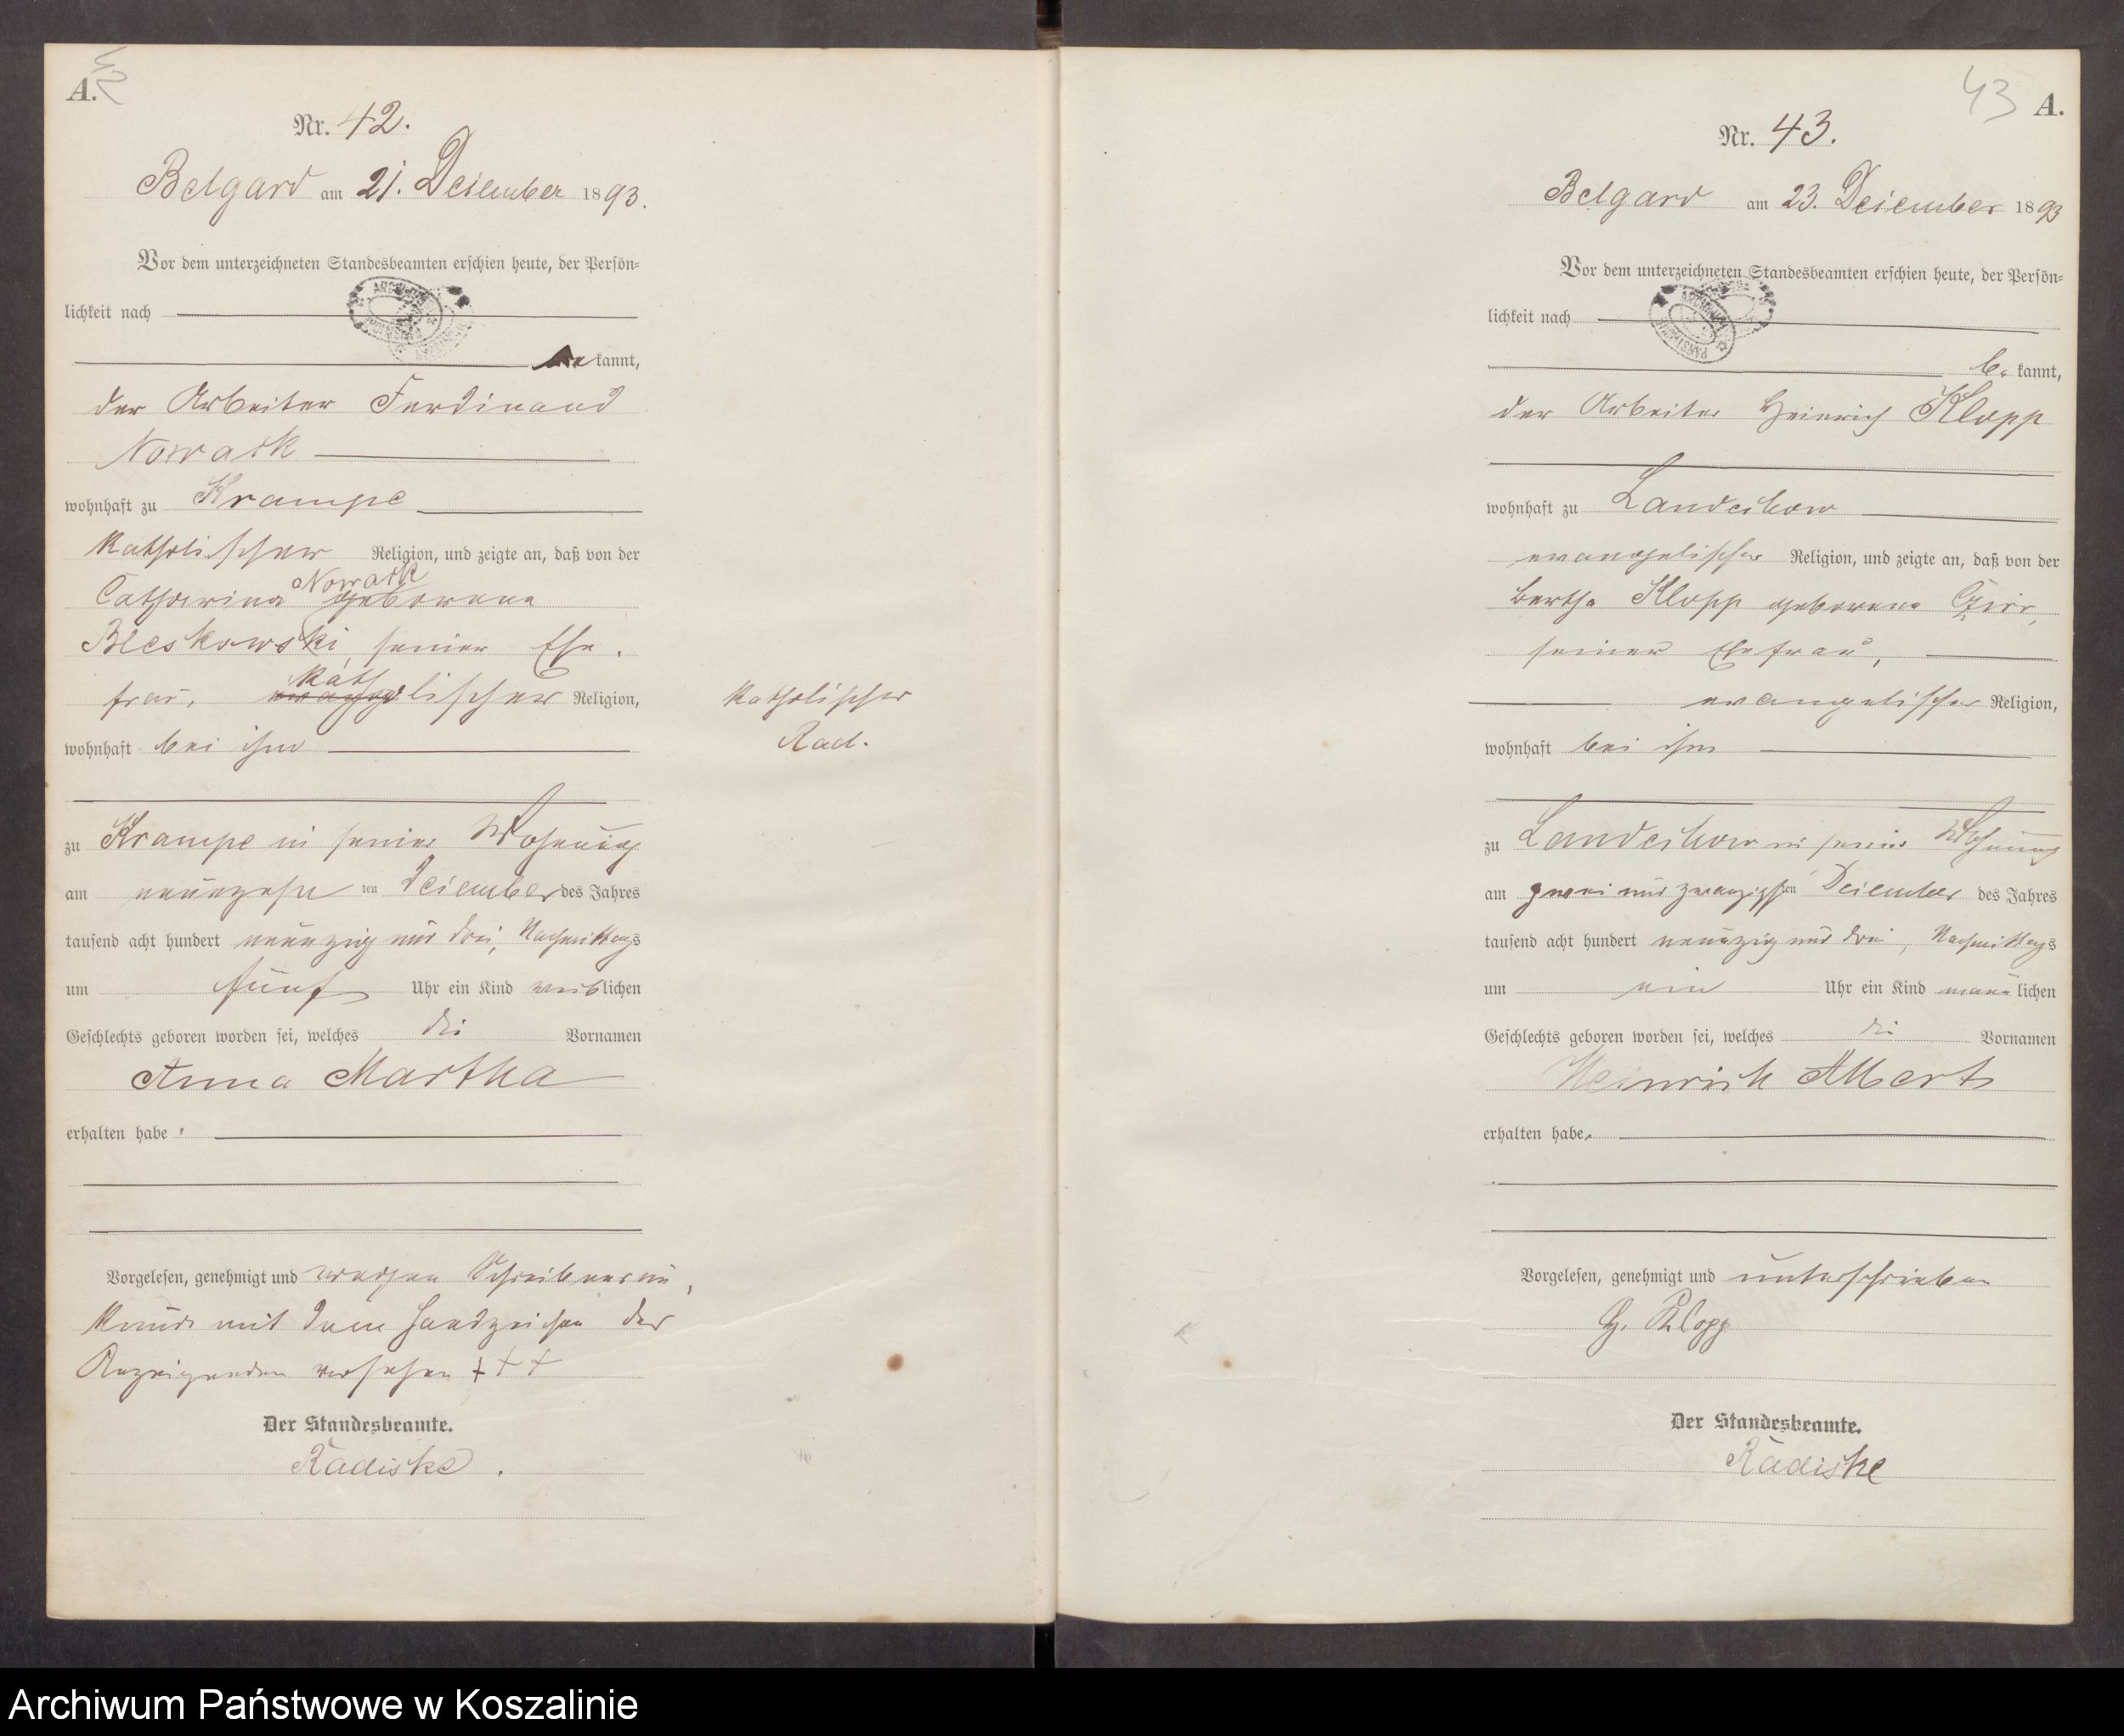 A.
42
Nr. 42.
Belgard am 21. Dezember 1893.
Vor dem unterzeichneten Standesbeamten erschien heute, der Persön-
lichkeit nach
be kannt,
der Arbeiter Ferdinand
Nowack
wohnhaft zu Krampe
katholischer Religion, und zeigte an, daß von der
Nowack
Catharina geborene
Bleskowski, seiner Ehe-
kath
frau, lischer Religion,
wohnhaft bei ihm
zu Krampe in seiner Wohnung
am neunzehn ten Dezember des Jahres
tausend acht hundert neunzig und drei, Nachmittags
um fünf Uhr ein Kind weiblichen
Geschlechts geboren worden sei, welches die Vornamen
Anna Martha
erhalten habe.
Vorgelesen, genehmigt und wegen Schreibensun-
kunde mit dem Handzeichen des
Anzeigenden versehen +++
Der Standesbeamte.
Radiske.
katholischer
Rad.
43
A.
Nr. 43.
Belgard am 23. Dezember 1893
Vor dem unterzeichneten Standesbeamten erschien heute, der Persön-
lichkeit nach
be kannt,
der Arbeiter Heinrich Klopp
wohnhaft zu Landechow
evangelischer Religion, und zeigte an, daß von der
Bertha Klopp geborene
seiner Ehefrau,
evangelischer Religion,
wohnhaft bei ihm
zu Landechow in seiner Wohnung
am zwei und zwanzigsten Dezember des Jahres
tausend acht hundert neunzig und drei, Nachmittags
um ein Uhr ein Kind männlichen
Geschlechts geboren worden sei, welches die Vornamen
Heinrich Albert
erhalten habe.
Vorgelesen, genehmigt und unterschrieben
H. Klopp
Der Standesbeamte.
Radiske
Archiwum Państwowe w Koszalinie